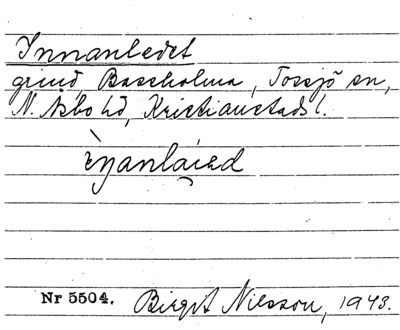 Innanledet
grind, Baseholma, Tossjö sn,
N. Åsbo hd, Kristianstads l.
Nr 5504. Birgit Nilsson, 1943.